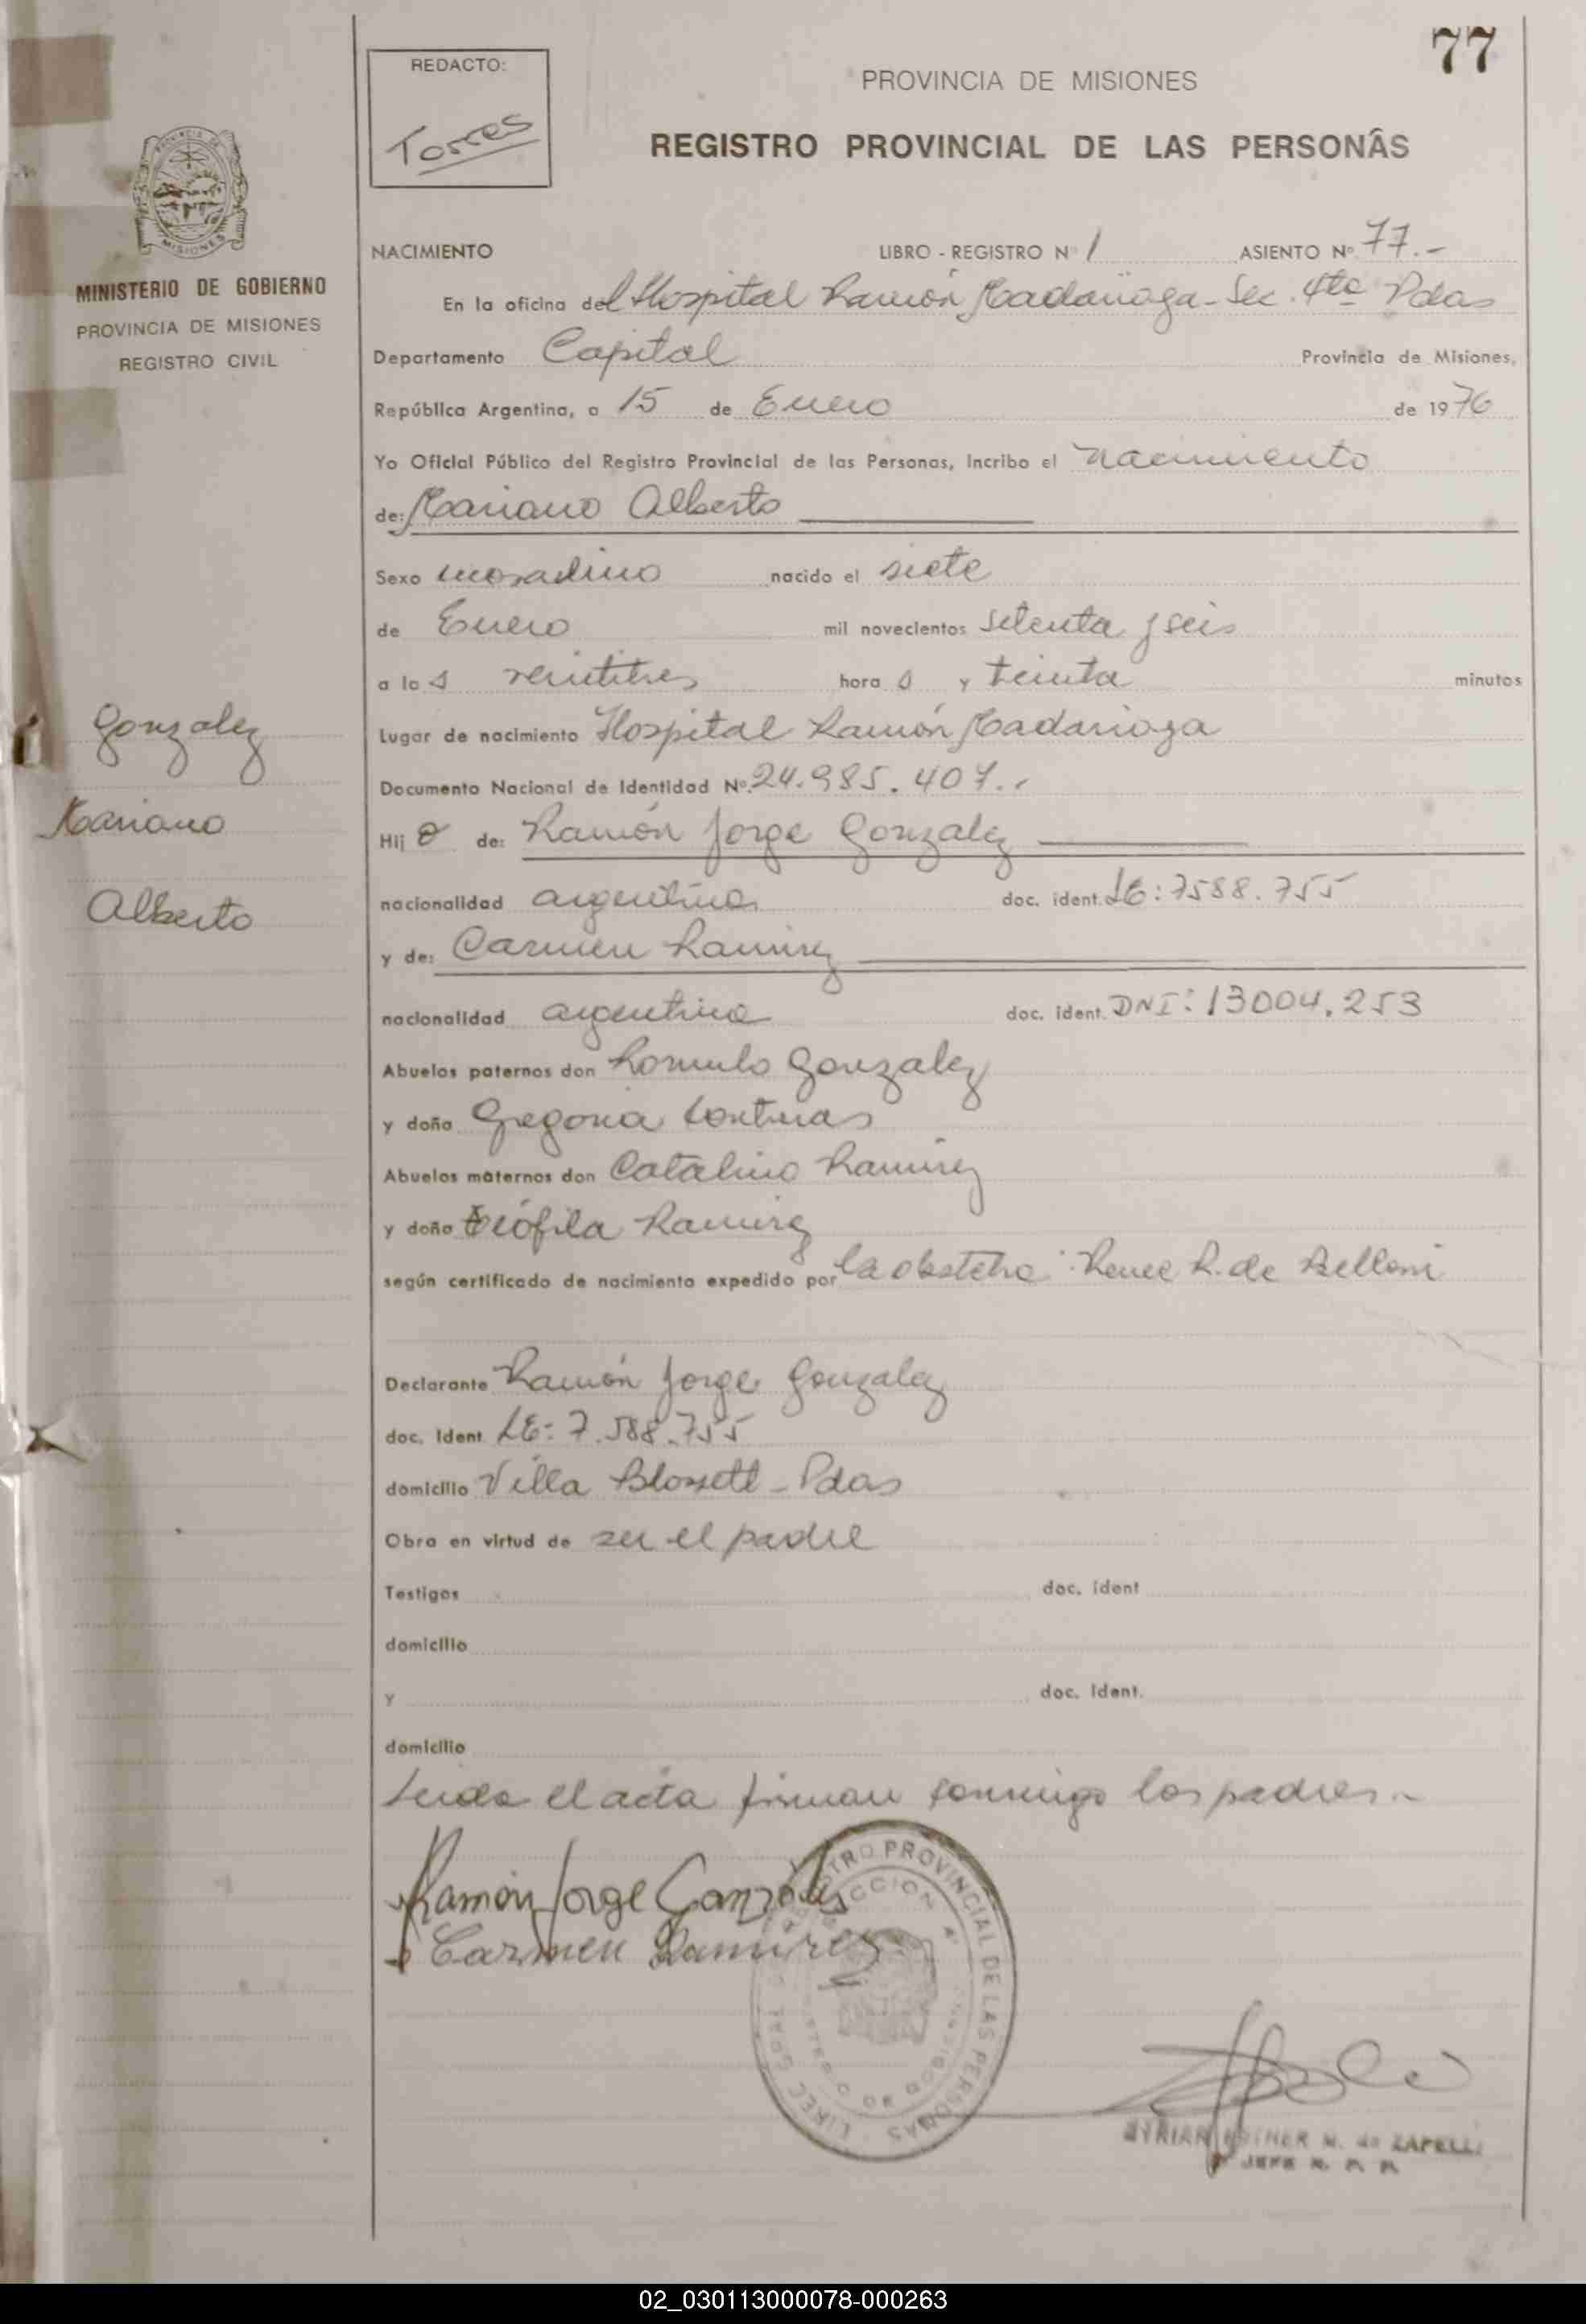 77
REDACTO:
Torres
PROVINCIA DE MISIONES
REGISTRO PROVINCIAL DE LAS PERSONAS
PROVINCIA DE
MISIONES
MINISTERIO DE GOBIERNO
PROVINCIA DE MISIONES
REGISTRO CIVIL
NACIMIENTO LIBRO - REGISTRO Nº 1 ASIENTO Nº 77.-
En la oficina del Hospital Ramón Madariaga - Sec. 4ta Pdas
Departamento Capital Provincia de Misiones,
República Argentina, a 15 de Enero de 1976
Yo Oficial Público del Registro Provincial de las Personas, Incribo el nacimiento
de: Mariano Alberto
Sexo masculino nacido el siete
de Enero mil novecientos setenta y seis
a las veintitres horas y treinta minutos
Lugar de nacimiento Hospital Ramón Madariaga
Documento Nacional de Identidad Nº 24.985.407.-
Hijo de: Ramón Jorge Gonzalez
nacionalidad argentina doc. ident. LE: 7588.755
y de: Carmen Ramirez
nacionalidad argentina doc. ident. DNI: 13004.253
Abuelos paternos don Romulo Gonzalez
y doña Gregoria Contreras
Abuelos maternos don Catalino Ramirez
y doña teófila Ramirez
según certificado de nacimiento expedido por la obstetra: Renee R. de Belloni
Declarante Ramón Jorge Gonzalez
doc. Ident LE: 7.588.755
domicilio Villa Blosett - Pdas
Obra en virtud de ser el padre
Testigos doc. ident
domicilio
y doc. Ident.
domicilio
Leida el acta firman conmigo los padres.-
Gonzalez
Mariano
Alberto
Ramón Jorge Gonzales
Carmen Ramirez
REGISTRO PROVINCIAL DE LAS PERSONAS
MINISTERIO DE GOBIERNO
ESTHER N. de ZAPELLI
JEFE
02_030113000078-000263